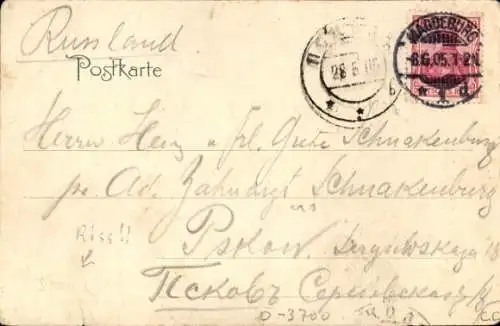 Russland
Postkarte
MAGDEBURG
-8.6.05.1-2N
* 1 d
26 5 05
Herrn Heinz u Frl. Grete Schnakenburg
pr. Ad. Zahnarzt Schnakenburg
Riss!!
Pskow. Sergiewskaja 18
Псковъ Сергіевская
D-3700